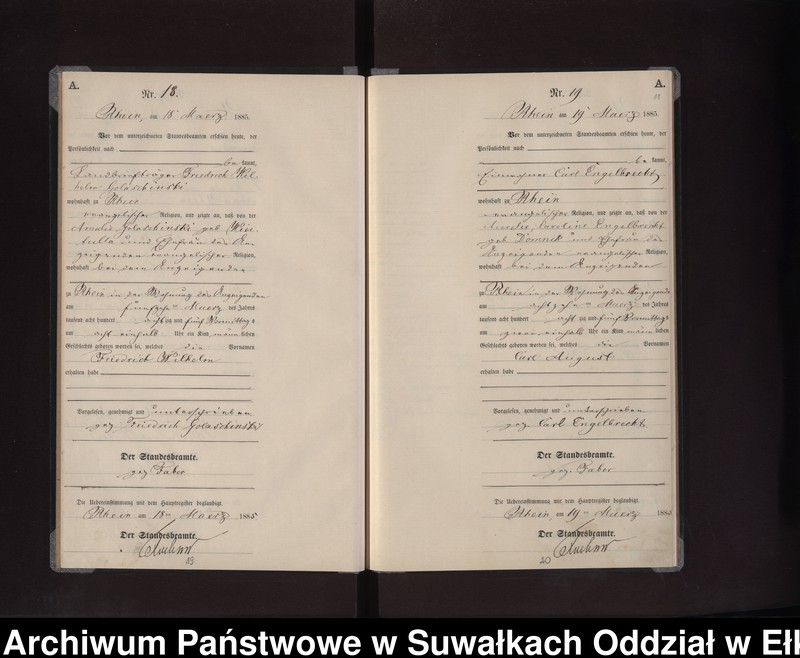 A.
Nr. 18.
Rhein, am 18ᵗ Maerz 1885.
Vor dem unterzeichneten Standesbeamten erschien heute, der
Persönlichkeit nach
be kannt,
Landbriefträger Friedrich Wil-
helm
wohnhaft zu Rhein
evangelischer Religion, und zeigte an, daß von der
Amalie geb.
Ehefrau des An-
zeigenden evangelischer Religion,
wohnhaft bei dem Anzeigenden
zu Rhein in der Wohnung des Anzeigenden
am fünfzehn Maerz des Jahres
tausend acht hundert acht zig und fünf Vormittags
um acht einhalb Uhr ein Kind männlichen
Geschlechts geboren worden sei, welches die Vornamen
Friedrich Wilhelm
erhalten habe
Vorgelesen, genehmigt und unterschrieben
gez. Friedrich
Der Standesbeamte.
gez. Faber
Die Uebereinstimmung mit dem Hauptregister beglaubigt.
Rhein am 18ten Maerz 1885
Der Standesbeamte.
A.
Nr. 19.
Rhein am 19ᵗ Maerz 1885.
Vor dem unterzeichneten Standesbeamten erschien heute, der
Persönlichkeit nach
be kannt,
Carl Engelbrecht
wohnhaft zu Rhein
evangelischer Religion, und zeigte an, daß von der
Caroline Engelbrecht
geb. Ehefrau des
Anzeigenden evangelischer Religion,
wohnhaft bei dem Anzeigenden
zu Rhein in der Wohnung des Anzeigenden
am achtzehn Maerz des Jahres
tausend acht hundert acht zig und fünf Vormittags
um zwei einhalb Uhr ein Kind männlichen
Geschlechts geboren worden sei, welches die Vornamen
Carl August
erhalten habe
Vorgelesen, genehmigt und unterschrieben
gez. Carl Engelbrecht
Der Standesbeamte.
gez. Faber
Die Uebereinstimmung mit dem Hauptregister beglaubigt.
Rhein, am 19ten Maerz 1885
Der Standesbeamte.
20
Archiwum Państwowe w Suwałkach Oddział w Ełk